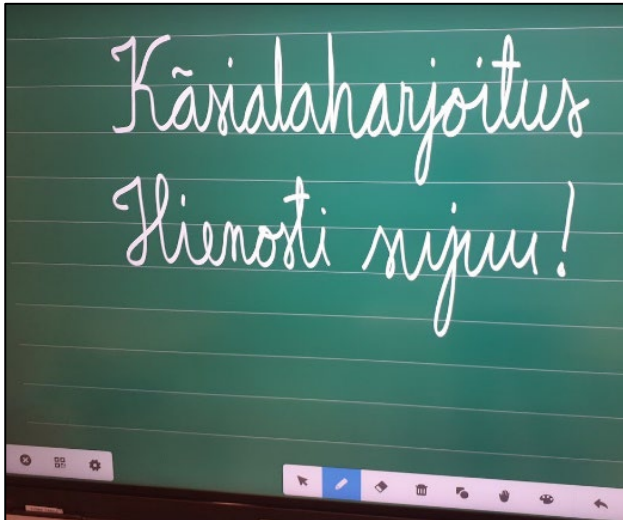 Käsialaharjoitus
Hienosti sujuu!